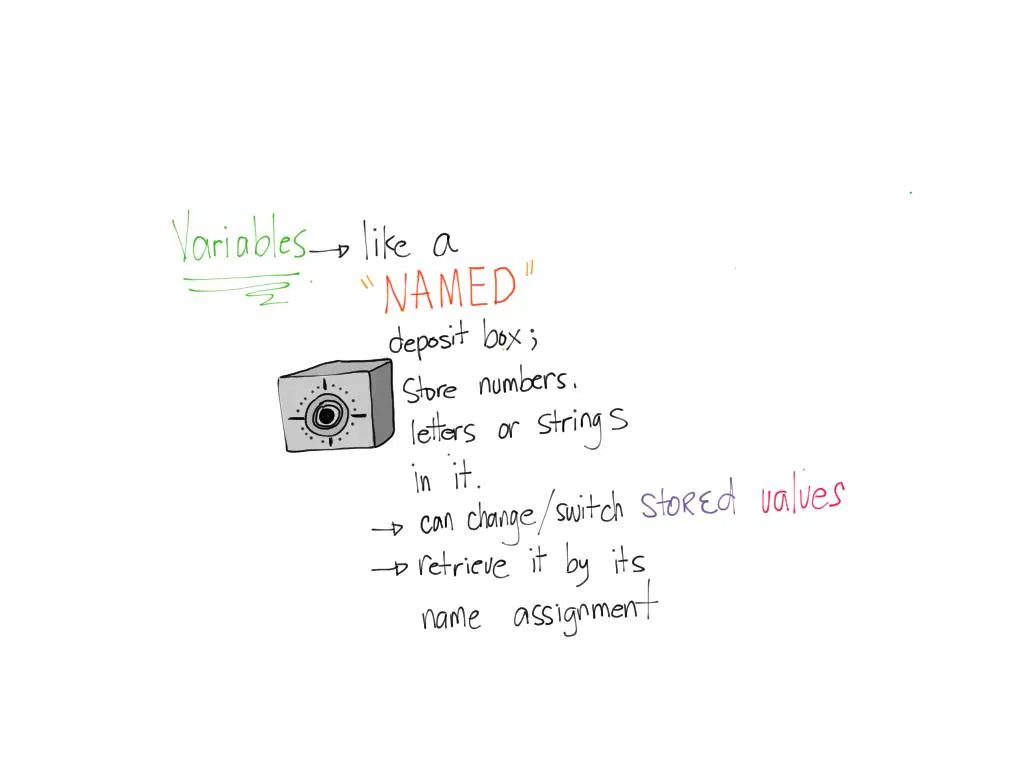 Variables → like a
"NAMED"
deposit box;
store numbers.
letters or strings
in it.
→ can change/switch STORED values
→ retrieve it by its
name assignment